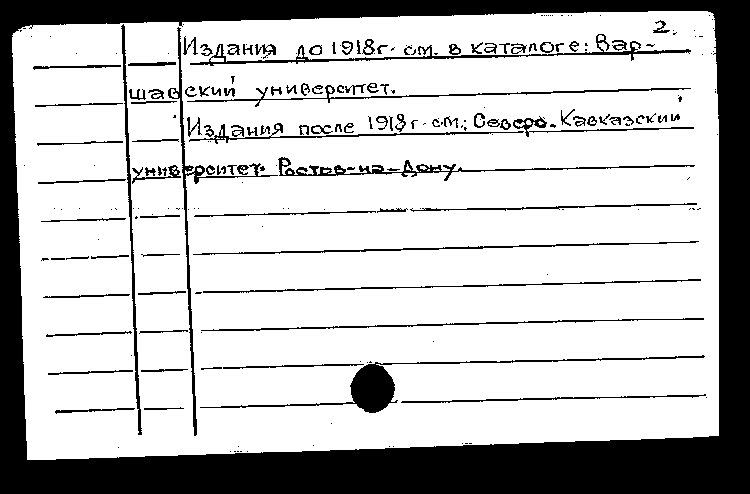 2.
Издания до 1918г. см. в каталоге: Вар-
шавский университет.
Издания после 1918г. см.: Северо-Кавказский
университет. Ростов-на-Дону.